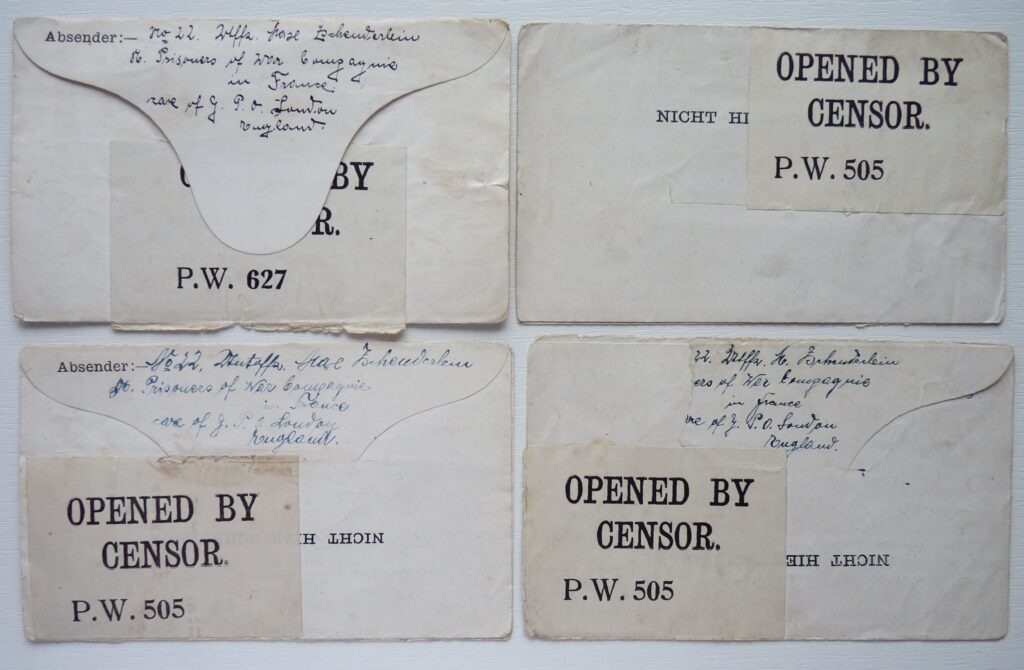 Absender:— No 22. Uffz. Max Zschenderlein
Prisoners of War Compagnie
in France
care of G. P. O. London
England.
BY
R.
P.W. 627
NICHT HI
OPENED BY
CENSOR.
P.W. 505
Absender:— No 22, Max Zschenderlein
Prisoners of War Compagnie
in France
care of G. P. O London
England.
OPENED BY
CENSOR.
P.W. 505
NICHT HIE
22. Uffz. M. Zschenderlein
ers of War Compagnie
in France
re of G. P.O. London
England.
OPENED BY
CENSOR.
P.W. 505
NICHT HIE